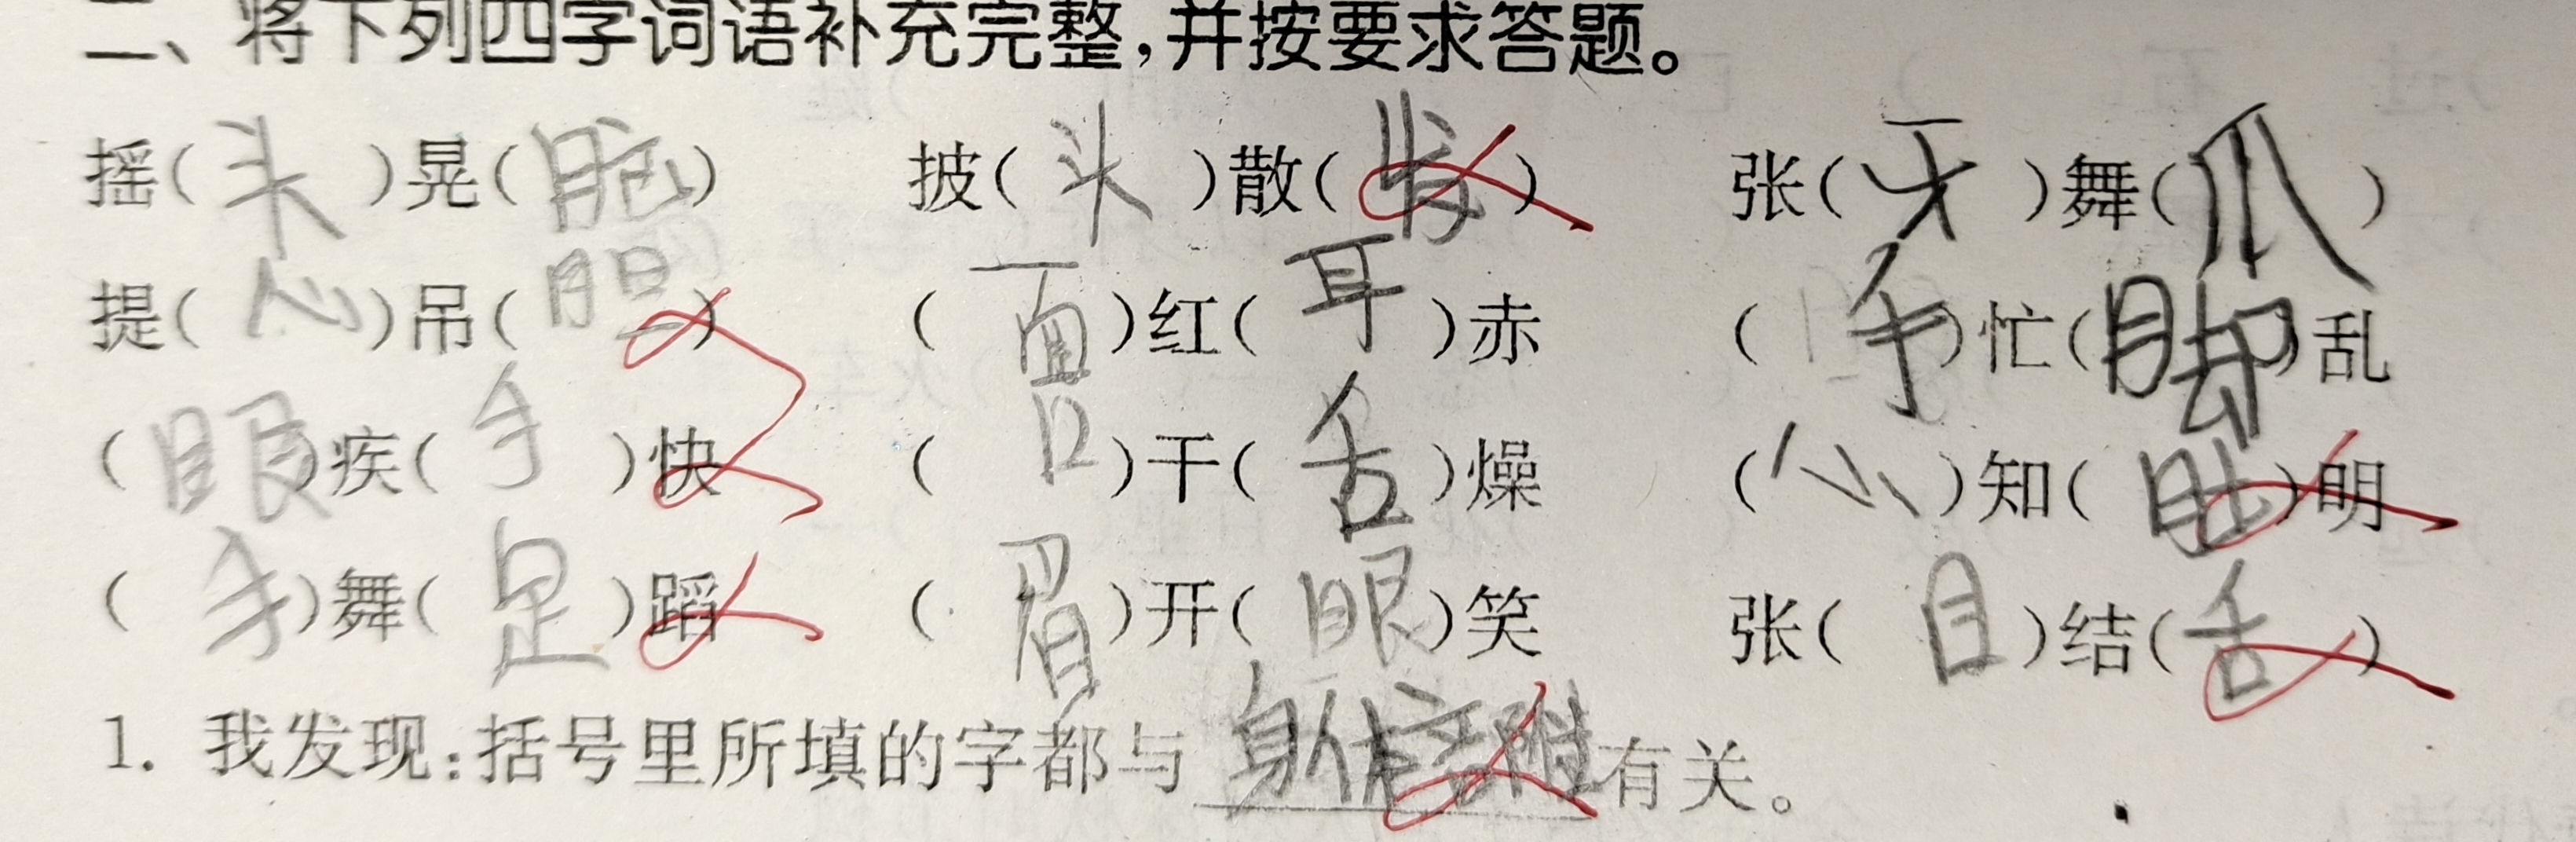 二、将下列四字词语补充完整,并按要求答题。
摇(头)晃(脑) 披(头)散(发) 张(牙)舞(爪)
提(心)吊(胆) (面)红(耳)赤 (手)忙(脚)乱
(眼)疾(手)快 (口)干(舌)燥 (心)知(肚)明
(手)舞(足)蹈 (眉)开(眼)笑 张(目)结(舌)
1. 我发现:括号里所填的字都与身体部位有关。